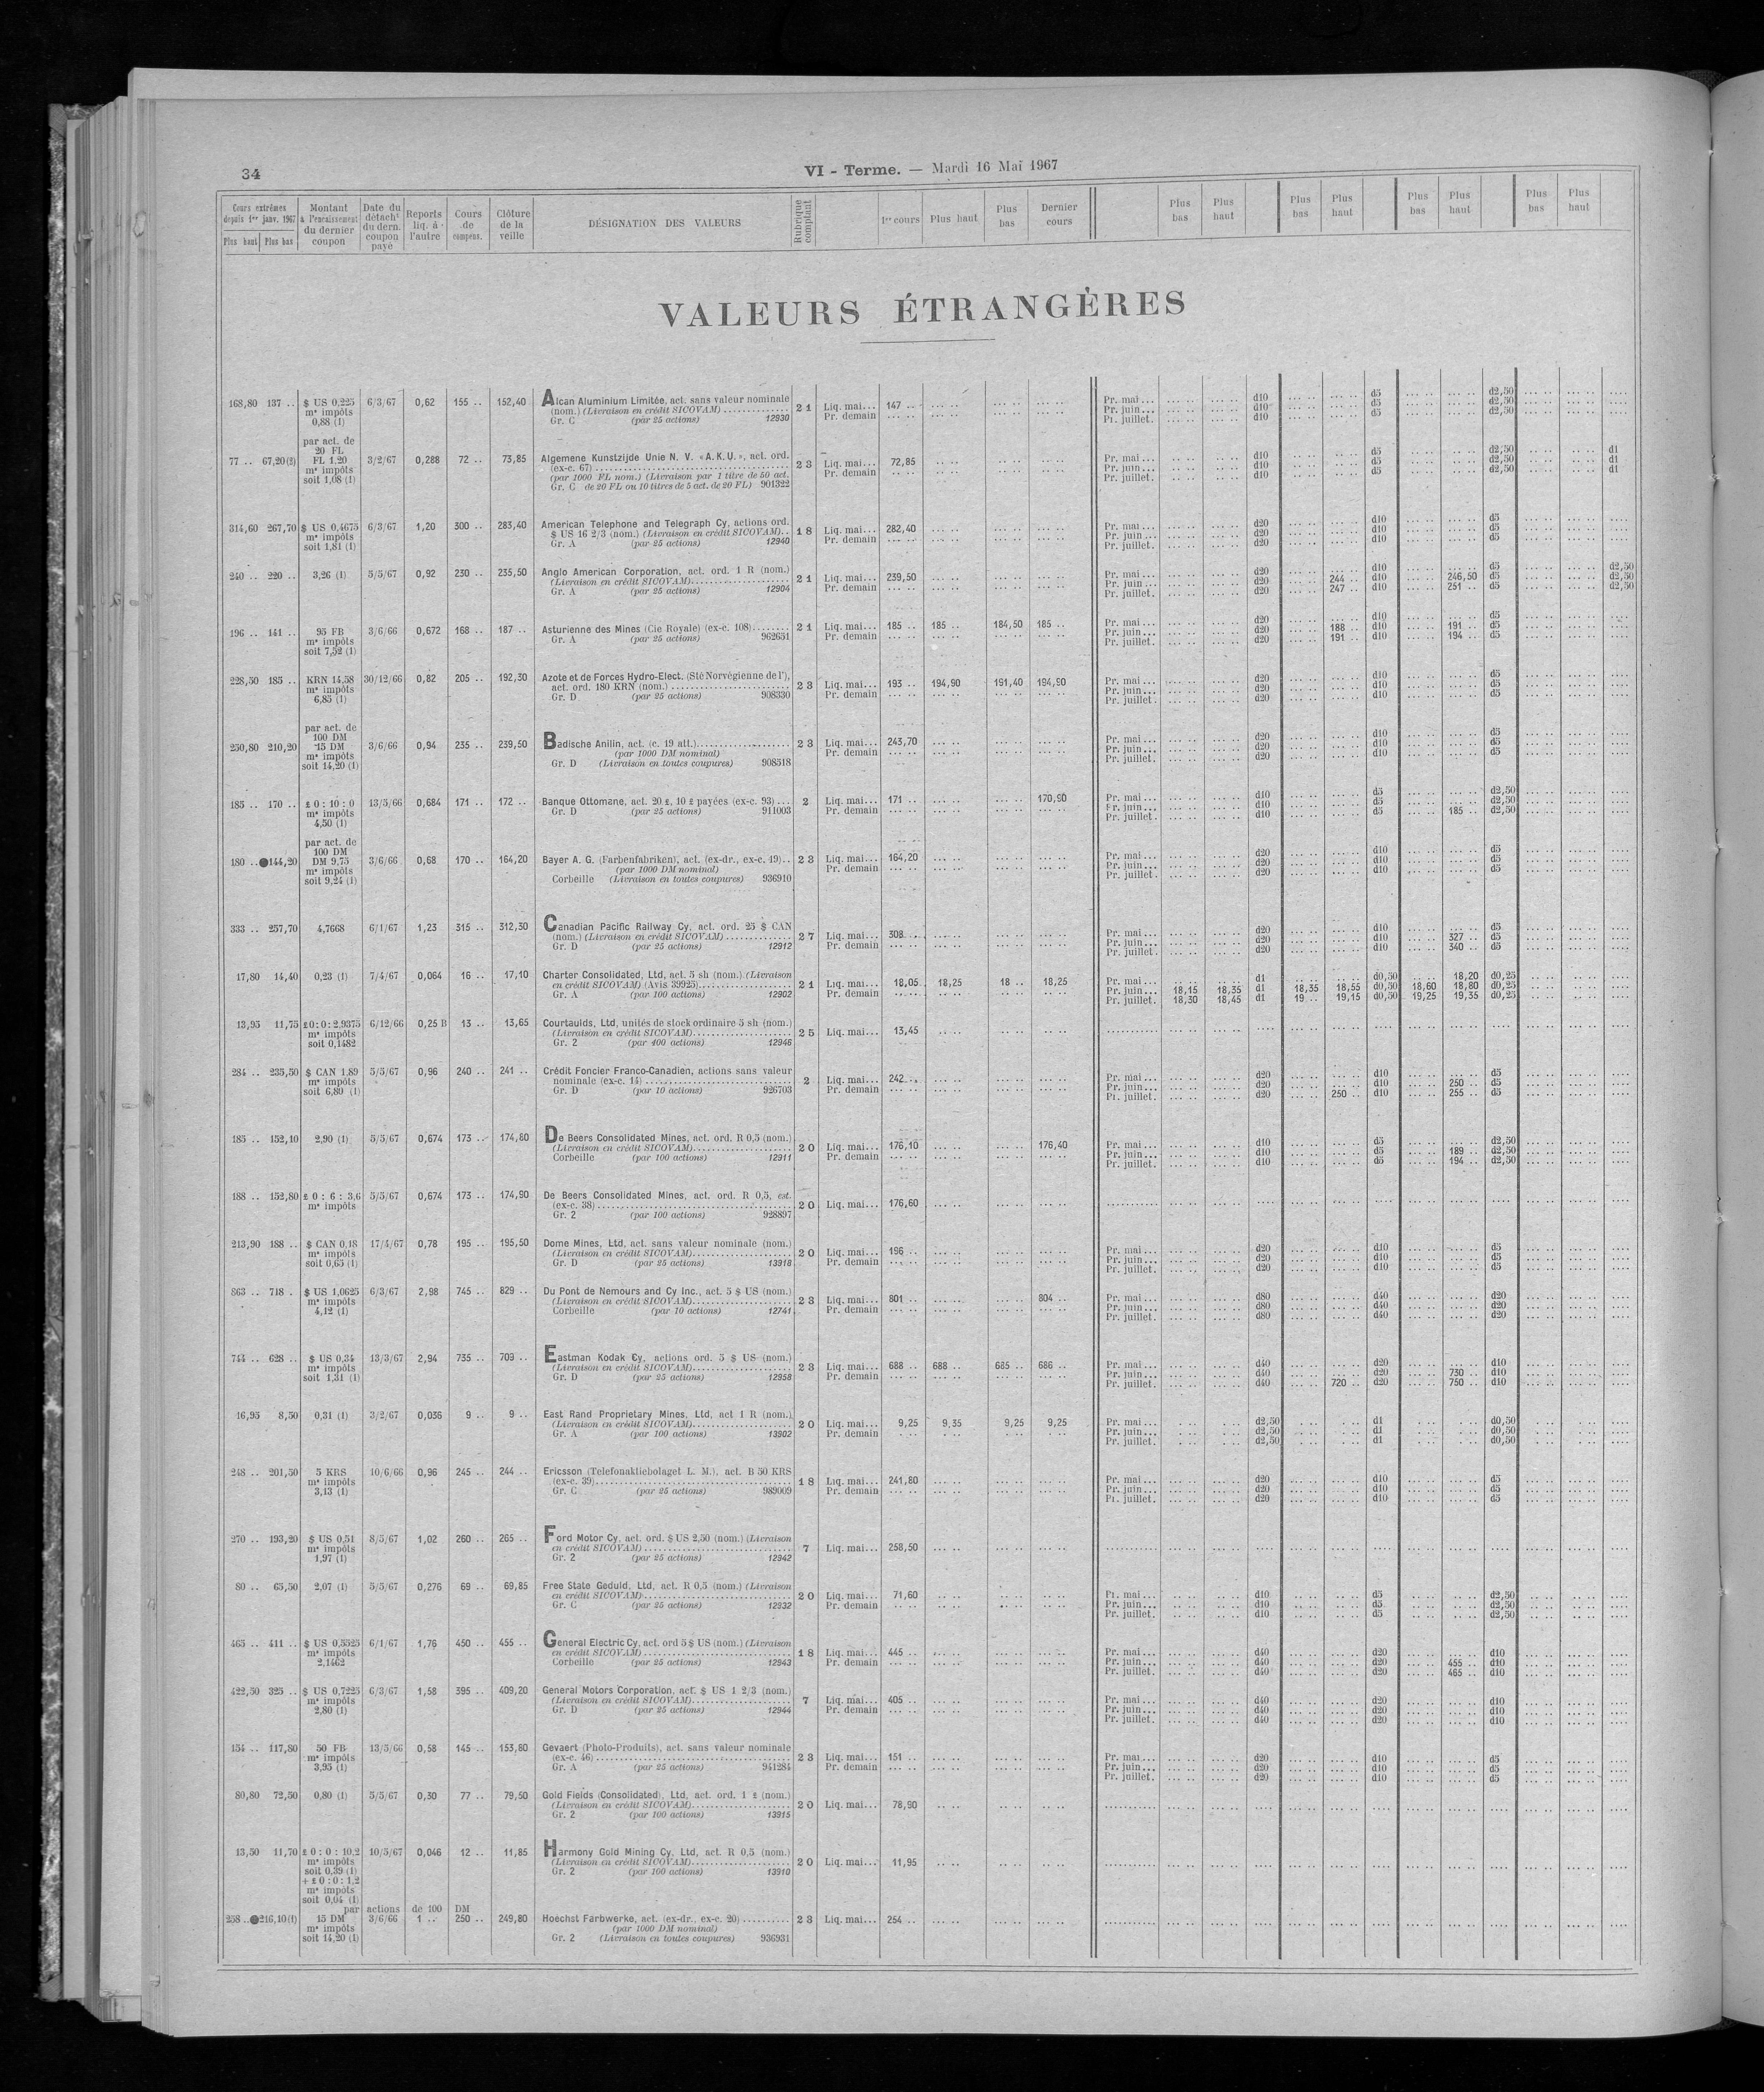 34
VI - Terme. — Mardi 16 Mai 1967
Cours extrêmes depuis 1er janv. 1967 Plus haut Plus bas | Montant à l'encaissement du dernier coupon | Date du détacht du dern. coupon payé | Reports liq. à l'autre | Cours de compens. | Clôture de la veille | DÉSIGNATION DES VALEURS | Rubrique comptant | 1er cours | Plus haut | Plus bas | Dernier cours | Plus bas | Plus haut | Plus bas | Plus haut | Plus bas | Plus haut | Plus bas | Plus haut
VALEURS ÉTRANGÈRES
168,80 137 .. $ US 0,225 6/3/67 0,62 155 .. 152,40 Alcan Aluminium Limitée, act. sans valeur nominale
m* impôts (nom.) (Livraison en crédit SICOVAM) 21 Liq. mai... 147 .. Pr. mai... d10 d5 d2,50
0,88 (1) Gr. C (par 25 actions) 12930 Pr. demain Pr. juin... d10 d5 d2,50
Pr. juillet. d10 d5 d2,50
par act. de
20 FL
77 .. 67,20(2) FL 1,20 3/2/67 0,288 72 .. 73,85 Algemene Kunstzijde Unie N. V. «A.K.U.», act. ord.
m* impôts (ex-c. 67) 23 Liq. mai... 72,85 Pr. mai... d10 d5 d2,50 d1
soit 1,08 (1) (par 1000 FL nom.) (Livraison par 1 titre de 50 act. Pr. demain Pr. juin... d10 d5 d2,50 d1
Gr. C de 20 FL ou 10 titres de 5 act. de 20 FL) 901322 Pr. juillet. d10 d5 d2,50 d1
314,60 267,70 $ US 0,4675 6/3/67 1,20 300 .. 283,40 American Telephone and Telegraph Cy, actions ord.
m* impôts $ US 16 2/3 (nom.) (Livraison en crédit SICOVAM).. 18 Liq. mai... 282,40 Pr. mai... d20 d10 d5
soit 1,81 (1) Gr. A (par 25 actions) 12940 Pr. demain Pr. juin... d20 d10 d5
Pr. juillet. d20 d10 d5
240 .. 220 .. 3,26 (1) 5/5/67 0,92 230 .. 235,50 Anglo American Corporation, act. ord. 1 R (nom.)
(Livraison en crédit SICOVAM) 21 Liq. mai... 239,50 Pr. mai... d20 d10 d5 d2,50
Gr. A (par 25 actions) 12904 Pr. demain Pr. juin... d20 244 .. d10 246,50 d5 d2,50
Pr. juillet. d20 247 .. d10 251 .. d5 d2,50
196 .. 141 .. 95 FB 3/6/66 0,672 168 .. 187 .. Asturienne des Mines (Cie Royale) (ex-c. 108) 21 Liq. mai... 185 .. 185 .. 184,50 185 .. Pr. mai... d20 d10 d5
m* impôts Gr. A (par 25 actions) 962651 Pr. demain Pr. juin... d20 188 .. d10 191 .. d5
soit 7,52 (1) Pr. juillet. d20 191 .. d10 194 .. d5
228,50 185 .. KRN 14,58 30/12/66 0,82 205 .. 192,30 Azote et de Forces Hydro-Elect. (Sté Norvégienne de l'),
m* impôts act. ord. 180 KRN (nom.) 23 Liq. mai... 193 .. 194,90 191,40 194,90 Pr. mai... d20 d10 d5
6,85 (1) Gr. D (par 25 actions) 908330 Pr. demain Pr. juin... d20 d10 d5
Pr. juillet. d20 d10 d5
par act. de
100 DM
250,80 210,20 15 DM 3/6/66 0,94 235 .. 239,50 Badische Anilin, act. (c. 19 att.) 23 Liq. mai... 243,70 Pr. mai... d20 d10 d5
m* impôts (par 1000 DM nominal) Pr. demain Pr. juin... d20 d10 d5
soit 14,20 (1) Gr. D (Livraison en toutes coupures) 908518 Pr. juillet. d20 d10 d5
185 .. 170 .. £ 0 : 10 : 0 13/5/66 0,684 171 .. 172 .. Banque Ottomane, act. 20 £, 10 £ payées (ex-c. 93) 2 Liq. mai... 171 .. 170,90 Pr. mai... d10 d5 d2,50
m* impôts Gr. D (par 25 actions) 911003 Pr. demain Pr. juin... d10 d5 d2,50
4,50 (1) Pr. juillet. d10 d5 185 .. d2,50
par act. de
100 DM
180 .. ●144,20 DM 9,75 3/6/66 0,68 170 .. 164,20 Bayer A. G. (Farbenfabriken), act. (ex-dr., ex-c. 19).. 23 Liq. mai... 164,20 Pr. mai... d20 d10 d5
m* impôts (par 1000 DM nominal) Pr. demain Pr. juin... d20 d10 d5
soit 9,24 (1) Corbeille (Livraison en toutes coupures) 936910 Pr. juillet. d20 d10 d5
333 .. 257,70 4,7668 6/1/67 1,23 315 .. 312,30 Canadian Pacific Railway Cy, act. ord. 25 $ CAN
(nom.) (Livraison en crédit SICOVAM) 27 Liq. mai... 308 .. Pr. mai... d20 d10 d5
Gr. D (par 25 actions) 12912 Pr. demain Pr. juin... d20 d10 327 .. d5
Pr. juillet. d20 d10 340 .. d5
17,80 14,40 0,23 (1) 7/4/67 0,064 16 .. 17,10 Charter Consolidated, Ltd, act. 5 sh (nom.) (Livraison
en crédit SICOVAM) (Avis 39925) 21 Liq. mai... 18,05 18,25 18 .. 18,25 Pr. mai... d1 d0,50 18,20 d0,25
Gr. A (par 100 actions) 12902 Pr. demain Pr. juin... 18,15 18,35 d1 18,35 18,55 d0,50 18,60 18,80 d0,25
Pr. juillet. 18,30 18,45 d1 19 .. 19,15 d0,50 19,25 19,35 d0,25
13,95 11,75 £0:0:2,9375 6/12/66 0,25 B 13 .. 13,65 Courtaulds, Ltd, unités de stock ordinaire 5 sh (nom.)
m* impôts (Livraison en crédit SICOVAM) 25 Liq. mai... 13,45
soit 0,1482 Gr. 2 (par 100 actions) 12946
284 .. 235,50 $ CAN 1,89 5/5/67 0,96 240 .. 241 .. Crédit Foncier Franco-Canadien, actions sans valeur
m* impôts nominale (ex-c. 14) 2 Liq. mai... 242 .. Pr. mai... d20 d10 d5
soit 6,80 (1) Gr. D (par 10 actions) 926703 Pr. demain Pr. juin... d20 d10 250 .. d5
Pr. juillet. d20 250 .. d10 255 .. d5
185 .. 152,10 2,90 (1) 5/5/67 0,674 173 .. 174,80 De Beers Consolidated Mines, act. ord. R 0,5 (nom.)
(Livraison en crédit SICOVAM) 20 Liq. mai... 176,10 176,40 Pr. mai... d10 d5 d2,50
Corbeille (par 100 actions) 12911 Pr. demain Pr. juin... d10 d5 189 .. d2,50
Pr. juillet. d10 d5 194 .. d2,50
188 .. 152,80 £ 0 : 6 : 3,6 5/5/67 0,674 173 .. 174,90 De Beers Consolidated Mines, act. ord. R 0,5, est.
m* impôts (ex-c. 38) 20 Liq. mai... 176,60
Gr. 2 (par 100 actions) 928897
213,90 188 .. $ CAN 0,18 17/4/67 0,78 195 .. 195,50 Dome Mines, Ltd, act. sans valeur nominale (nom.)
m* impôts (Livraison en crédit SICOVAM) 20 Liq. mai... 196 .. Pr. mai... d20 d10 d5
soit 0,65 (1) Gr. D (par 25 actions) 13918 Pr. demain Pr. juin... d20 d10 d5
Pr. juillet. d20 d10 d5
863 .. 718 . $ US 1,0625 6/3/67 2,98 745 .. 829 .. Du Pont de Nemours and Cy Inc., act. 5 $ US (nom.)
m* impôts (Livraison en crédit SICOVAM) 23 Liq. mai... 801 .. 804 .. Pr. mai... d80 d40 d20
4,12 (1) Corbeille (par 10 actions) 12741 Pr. demain Pr. juin... d80 d40 d20
Pr. juillet. d80 d40 d20
744 .. 628 .. $ US 0,34 13/3/67 2,94 735 .. 709 .. Eastman Kodak Cy, actions ord. 5 $ US (nom.)
m* impôts (Livraison en crédit SICOVAM) 23 Liq. mai... 688 .. 688 .. 685 .. 686 .. Pr. mai... d40 d20 d10
soit 1,31 (1) Gr. D (par 25 actions) 12958 Pr. demain Pr. juin... d40 d20 730 .. d10
Pr. juillet. d40 720 .. d20 750 .. d10
16,95 8,50 0,31 (1) 3/2/67 0,036 9 .. 9 .. East Rand Proprietary Mines, Ltd, act 1 R (nom.)
(Livraison en crédit SICOVAM) 20 Liq. mai... 9,25 9,35 9,25 9,25 Pr. mai... d2,50 d1 d0,50
Gr. A (par 100 actions) 13902 Pr. demain Pr. juin... d2,50 d1 d0,50
Pr. juillet. d2,50 d1 d0,50
248 .. 201,50 5 KRS 10/6/66 0,96 245 .. 244 .. Ericsson (Telefonaktiebolaget L. M.), act. B 50 KRS
m* impôts (ex-c. 39) 18 Liq. mai... 241,80 Pr. mai... d20 d10 d5
3,13 (1) Gr. C (par 25 actions) 989009 Pr. demain Pr. juin... d20 d10 d5
Pr. juillet. d20 d10 d5
270 .. 193,20 $ US 0,51 8/5/67 1,02 260 .. 265 .. Ford Motor Cy, act. ord. $ US 2,50 (nom.) (Livraison
m* impôts en crédit SICOVAM) 7 Liq. mai... 258,50
1,97 (1) Gr. 2 (par 25 actions) 12942
80 .. 65,50 2,07 (1) 5/5/67 0,276 69 .. 69,85 Free State Geduld, Ltd, act. R 0,5 (nom.) (Livraison
en crédit SICOVAM) 20 Liq. mai... 71,60 Pr. mai... d10 d5 d2,50
Gr. C (par 25 actions) 12932 Pr. demain Pr. juin... d10 d5 d2,50
Pr. juillet. d10 d5 d2,50
465 .. 411 .. $ US 0,5525 6/1/67 1,76 450 .. 455 .. General Electric Cy, act. ord 5 $ US (nom.) (Livraison
m* impôts en crédit SICOVAM) 18 Liq. mai... 445 .. Pr. mai... d40 d20 d10
2,1462 Corbeille (par 25 actions) 12943 Pr. demain Pr. juin... d40 d20 455 .. d10
Pr. juillet. d40 d20 465 .. d10
422,50 325 .. $ US 0,7225 6/3/67 1,58 395 .. 409,20 General Motors Corporation, act. $ US 1 2/3 (nom.)
m* impôts (Livraison en crédit SICOVAM) 7 Liq. mai... 405 .. Pr. mai... d40 d20 d10
2,80 (1) Gr. D (par 25 actions) 12944 Pr. demain Pr. juin... d40 d20 d10
Pr. juillet. d40 d20 d10
154 .. 117,80 50 FB 13/5/66 0,58 145 .. 153,80 Gevaert (Photo-Produits), act. sans valeur nominale
m* impôts (ex-c. 46) 23 Liq. mai... 151 .. Pr. mai... d20 d10 d5
3,95 (1) Gr. A (par 25 actions) 941284 Pr. demain Pr. juin... d20 d10 d5
Pr. juillet. d20 d10 d5
80,80 72,50 0,80 (1) 5/5/67 0,30 77 .. 79,50 Gold Fields (Consolidated), Ltd, act. ord. 1 £ (nom.)
(Livraison en crédit SICOVAM) 20 Liq. mai... 78,90
Gr. 2 (par 100 actions) 13915
13,50 11,70 £ 0 : 0 : 10,2 10/5/67 0,046 12 .. 11,85 Harmony Gold Mining Cy, Ltd, act. R 0,5 (nom.)
m* impôts (Livraison en crédit SICOVAM) 20 Liq. mai... 11,95
soit 0,39 (1) Gr. 2 (par 100 actions) 13910
+ £ 0 : 0 : 1,2
m* impôts
soit 0,04 (1)
par actions de 100 DM
258 .. ●216,10(1) 15 DM 3/6/66 1 .. 250 .. 249,80 Hoechst Farbwerke, act. (ex-dr., ex-c. 20) 23 Liq. mai... 254 ..
m* impôts (par 1000 DM nominal)
soit 14,20 (1) Gr. 2 (Livraison en toutes coupures) 936931